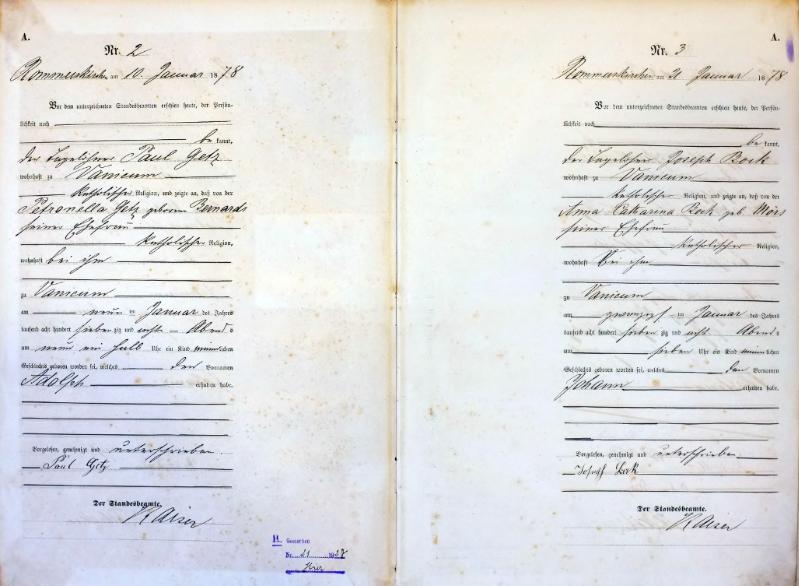 A.
Nr. 2
Rommerskirchen am 10. Januar 1878
Vor dem unterzeichneten Standesbeamten erschien heute, der Persön-
lichkeit nach
be kannt,
der Tagelöhner Paul Getz
wohnhaft zu Vanicum
katholischer Religion, und zeigte an, daß von der
Petronella Getz geborene Bernards
seiner Ehefrau
katholischer Religion,
wohnhaft bei ihm
zu Vanicum
am neun ten Januar des Jahres
tausend acht hundert sieben zig und acht Abend s
um neun ein halb Uhr ein Kind männlichen
Geschlechts geboren worden sei, welches den Vornamen
Adolph erhalten habe.
Vorgelesen, genehmigt und unterschrieben.
Paul Getz
Der Standesbeamte.
Kaiser
H. Gestorben
Nr. 21 19
A.
Nr. 3
Rommerskirchen am 21 Januar 1878
Vor dem unterzeichneten Standesbeamten erschien heute, der Persön-
lichkeit nach
be kannt,
der Tagelöhner Joseph Bock
wohnhaft zu Vanicum
katholischer Religion, und zeigte an, daß von der
Anna Catharina Bock geb Mörs
seiner Ehefrau
katholischer Religion,
wohnhaft bei ihm
zu Vanicum
am zwanzigs ten Januar des Jahres
tausend acht hundert sieben zig und acht Abend s
um sieben Uhr ein Kind männlichen
Geschlechts geboren worden sei, welches den Vornamen
Johann erhalten habe.
Vorgelesen, genehmigt und unterschrieben
Joseph Bock
Der Standesbeamte.
Kaiser